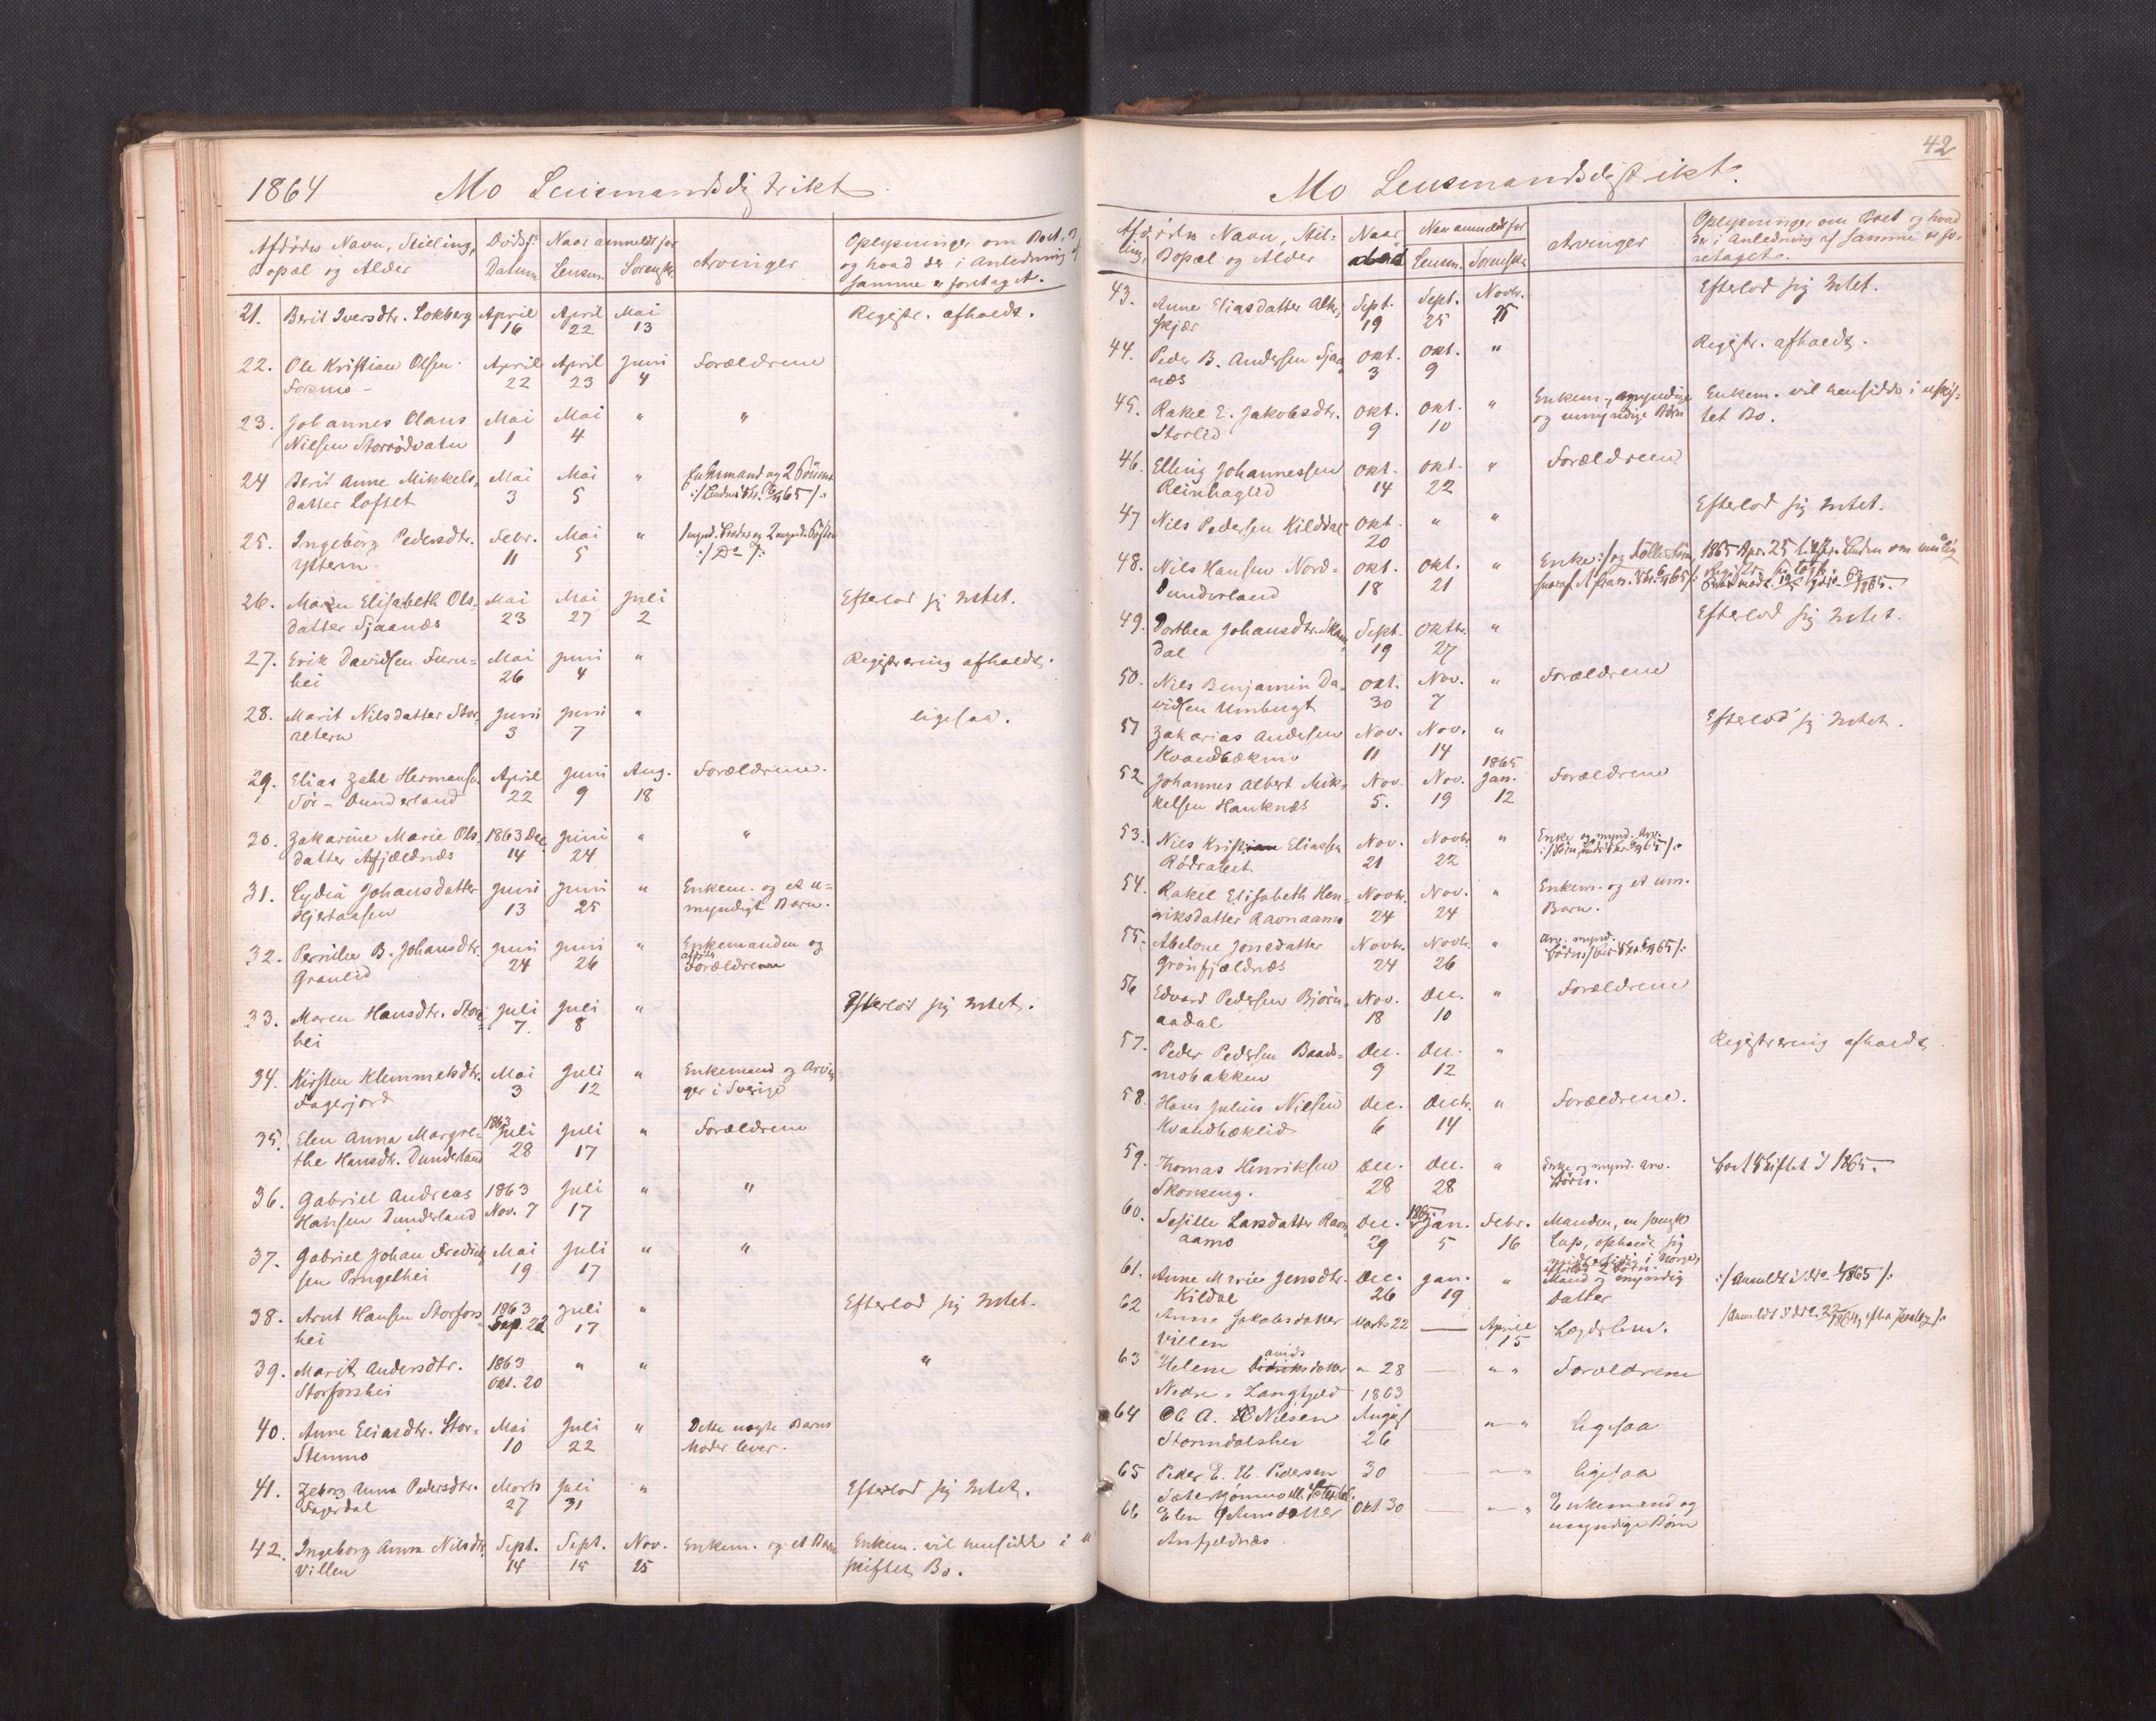 1864 Mo Lensmandsdistrikt
Afdødes Navn, Stilling, Dødsf: Naar anmeldt for Oplysninger om Boet,
Bopæl og Alder Datum Lensm. Sorenskr. Arvinger og hvad der i Anledning af
samme er foretaget.
21. Berit Iversdtr. Lokberg April April Mai Registr. afholdt.
16 22 13
22. Ole Kristian Olsen April April Juni Forældrene
Forsmo 22 23 4
23. Johannes Olaus Mai Mai " "
Nielsen Storrødvatn 1 4
24 Berit Anne Mikkels- Mai Mai " Enkemand og 2
datter Loftet 3 5
25. Ingebørg Pedersdtr. Febr. Mai "
Ytteren 11 5
26. Maren Elisabeth Ols- Mai Mai Juli Efterlod sig Intet.
datter Sjaanæs 23 27 2
27. Erik Davidsen Furu- Mai Juni " Registrering afholdt.
hei 26 4
28. Marit Nilsdatter Stor- Juni Juni " ligesaa.
altern 3 7
29. Elias Zahl Hermans. April Juni Aug. Forældrene.
Sør-Dunderland 22 9 18
30. Zakarine Marie Ols- 1863 Dec Juni " "
datter Asfjældnæs 14 24
31. Lydia Johansdatter Juni Juni " Enkem. og et u-
Hjertaasen 13 25 myndigt Barn.
32. Pernille B. Johansdtr. Juni Juni " Enkemanden og
Granlid 24 26 Forældrene
33. Maren Hansdtr. Stor- Juli Juli " Efterlod sig Intet.
hei 7. 8
34. Kirsten Klemmetsdtr. Mai Juli " Enkemand og Arvin-
Fagerjord 3 12 ger i Sverige
35. Elen Anna Margre- 1863 Juli Juli " Forældrene
the Hansdtr. Dunderland 28 17
36. Gabriel Andreas 1863 Juli " "
Hansen Dunderland Nov. 7 17
37. Gabriel Johan Fredrik- Mai Juli " "
sen Pruglhei 19 17
38. Arnt Hansen Storfors- 1863 Juli " Efterlod sig Intet.
hei Sep. 22 17
39. Marit Andersdtr. 1863 " " "
Storforshei Okt. 20
40. Anne Eliasdtr. Stor- Mai Juli " Dette uægte Barns
Stenmo 10 22 Moder lever.
41. Zeborg Anna Pedersdtr. Marts Juli " Efterlod sig Intet.
Fagerdal 27 31
42. Ingeborg Anna Nilsdtr. Sept. Sept. Nov. Enkem. og et Barn Enkem. vil hensidde i u-
Villen 14 15 25 skiftet Bo.
42
Mo Lensmandsdistrikt.
Afdødes Navn, Stil- Naar Naar anmeldt for Oplysninger om Boet og hvad
ling, Bopæl og Alder død Lensm. Sorenskr. Arvinger der i Anledning af samme er fo-
retaget.
43. Anne Eliasdatter Alte- Sept. Sept. Novbr. Efterlod sig Intet.
skjær 19 25 25
44. Peder B. Andersen Sjaa- Okt. Okt. " Registr. afholdt.
næs 3 9
45. Rakel E. Jakobsdtr. Okt. Okt. " Enkem., myndige Enkem. vil hensidde i uskif-
Storlid 9 10 og umyndige Børn tet Bo.
46. Elling Johannessen Okt. Okt. " Forældrene
Reinhaglid 14 22
47 Nils Pedersen Kilddal Okt. " " Efterlod sig Intet.
20
48. Nils Hansen Nord- Okt. Okt. " Enke :/ og 1865 Apr. 25
Dunderland 18 21
49. Dorthea Johansdtr. Skam- Sept. Oktbr. " Efterlod sig Intet.
dal 19 27
50. Nils Benjamin Da- Okt. Nov. " Forældrene
vidsen Umbugt 30 7
51 Zakarias Andersen Nov. Nov. " Efterlod sig Intet.
Kvandbækmo 11 14
52 Johannes Albert Mik- Nov. Nov. 1865 Jan. Forældrene
kelsen Hauknæs 5. 19 12
53. Nils Kristian Eliassen Nov. Novbr. " Enke og mynd. Arv.
Rødvatnet 21 22
54. Rakel Elisabeth Hen- Novbr. Nov. " Enkem. og et um.
riksdatter Ravnaamo 24 24 Barn.
55. Abelone Jonsdatter Novbr. Novbr. " Arv. mynd.
Grønfjældnæs 24 26
56 Edvard Pedersen Bjørn- Nov. Dec. " Forældrene
aadal 18 10
57. Peder Pedersen Baads- Dec. Dec. " Registrering afholdt.
mobakken 9 12
58. Hans Julius Nielsen Dec. Decbr. " Forældrene.
Kvandbæklid 6 14
59. Thomas Henriksen Dec. Dec. " Enke og mynd. Arv. Boet Skiftet i 1865.
Skonseng. 28 28 Børn.
60. Sesille Larsdatter Ravn- Dec. 1865 Jan. Febr. Manden, en svensk
aamo 29 5 16 Lap, opholdt sig
midlertidig i Norge,
61. Anne Marie Jensdtr. Dec. Jan. " Mand og myndig
Kildal 26 19 Datter
62 Anne Jakobsdatter Marts 22 — April Lægdslem.
Villen 15
63 Helene Davidsdatter " 28 — " " Forældrene
Nedre-Langfjeld 1863
64 Ole A. Nilsen August " — " ligesaa
Stormdalshei 26
65 Peder E. Pedersen 30 — " — " ligesaa
66 Elen Jensdatter Okt 30 — " — " Enkemand og
Anfjeldnæs. umyndige Børn